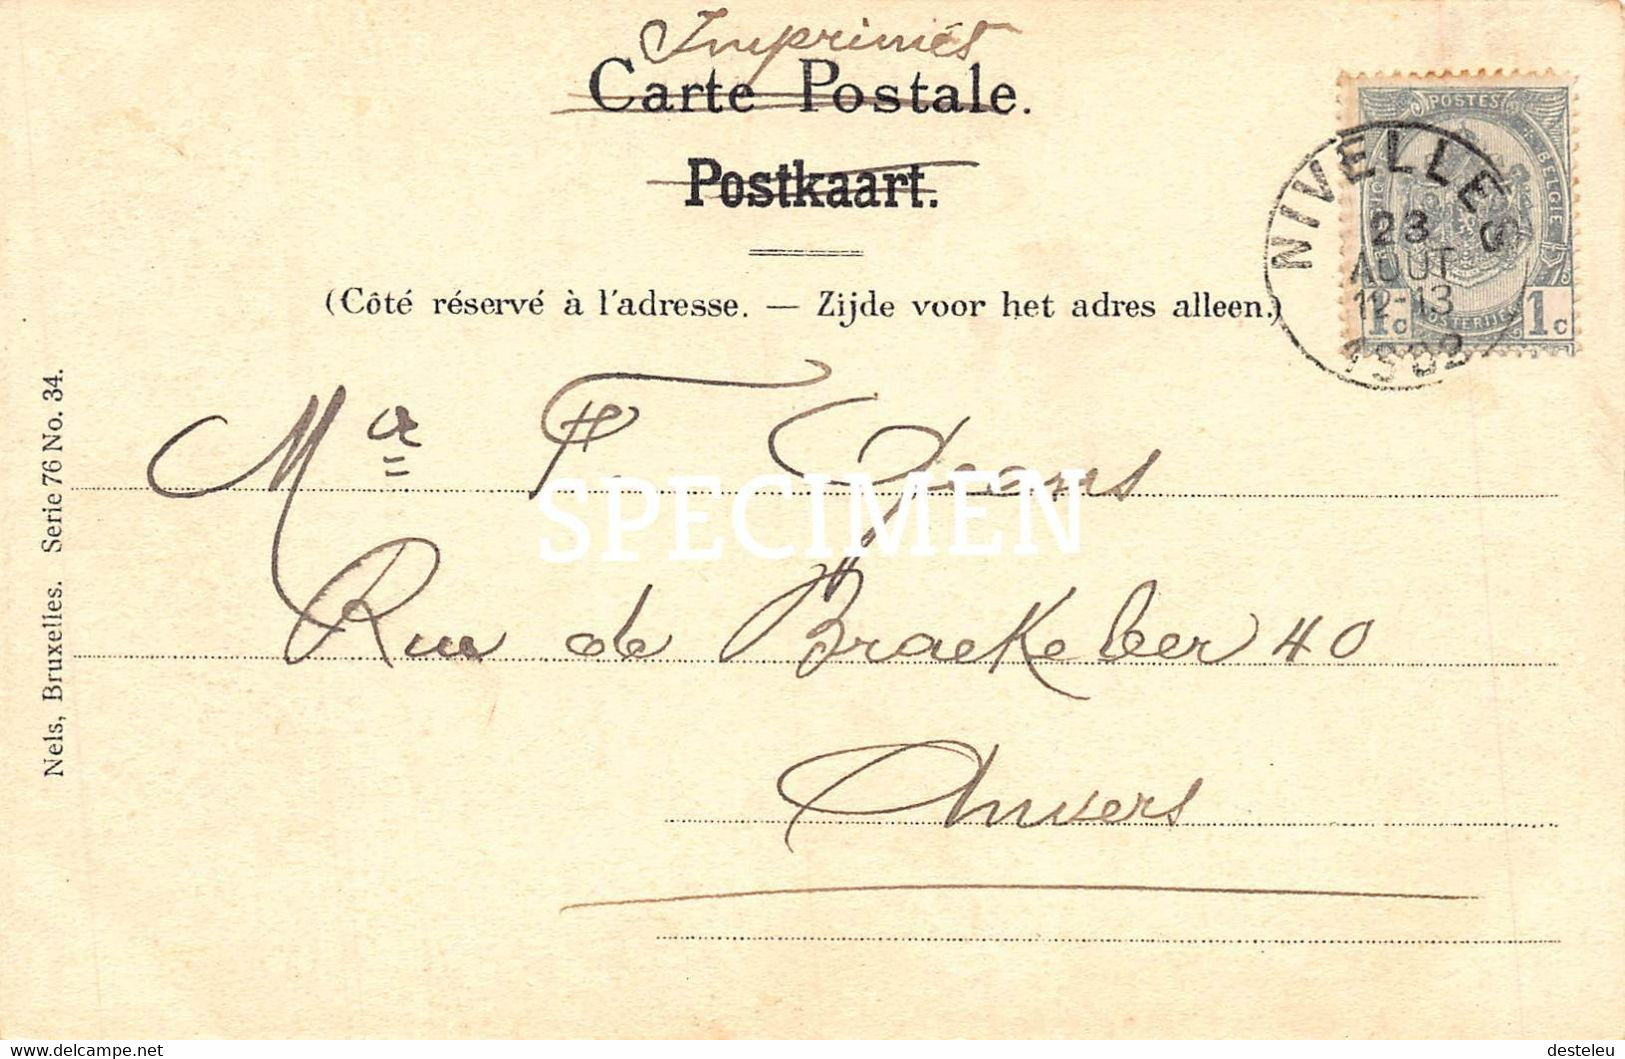 Imprimés
Carte Postale.
Postkaart.
(Côté réservé à l'adresse. — Zijde voor het adres alleen.)
POSTES
BELGIE
NIVELLES
23
AOUT
12-13
1902
1c 1c
Mr F.
SPECIMEN
Rue de Braekeleer 40
Anvers
Nels, Bruxelles. Serie 76 No. 34.
www.delcampe.net
desteleu